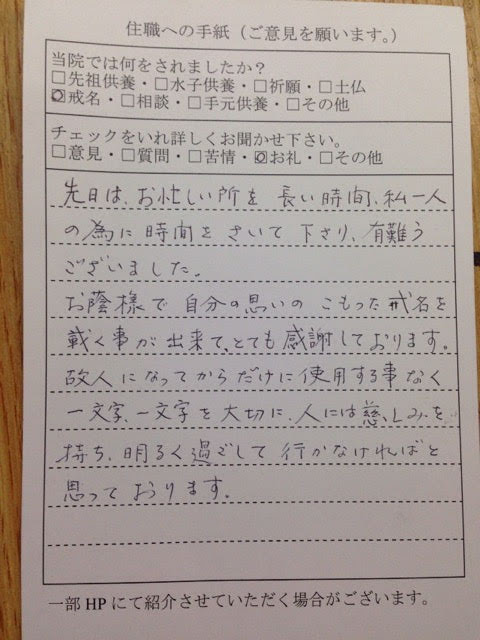 住職への手紙（ご意見を願います。）
当院では何をされましたか？
□先祖供養・□水子供養・□祈願・□土仏
☑戒名・□相談・□手元供養・□その他
チェックをいれ詳しくお聞かせ下さい。
□意見・□質問・□苦情・☑お礼・□その他
先日は、お忙しい所を 長い時間、私一人
の為に時間をさいて下さり、有難う
ございました。
お蔭様で自分の思いのこもった戒名を
載く事が出来て、とても感謝しております。
故人になってからだけに使用する事なく
一文字、一文字を大切に、人には慈しみを
持ち、明るく過ごして行かなければと
思っております。
一部HPにて紹介させていただく場合がございます。